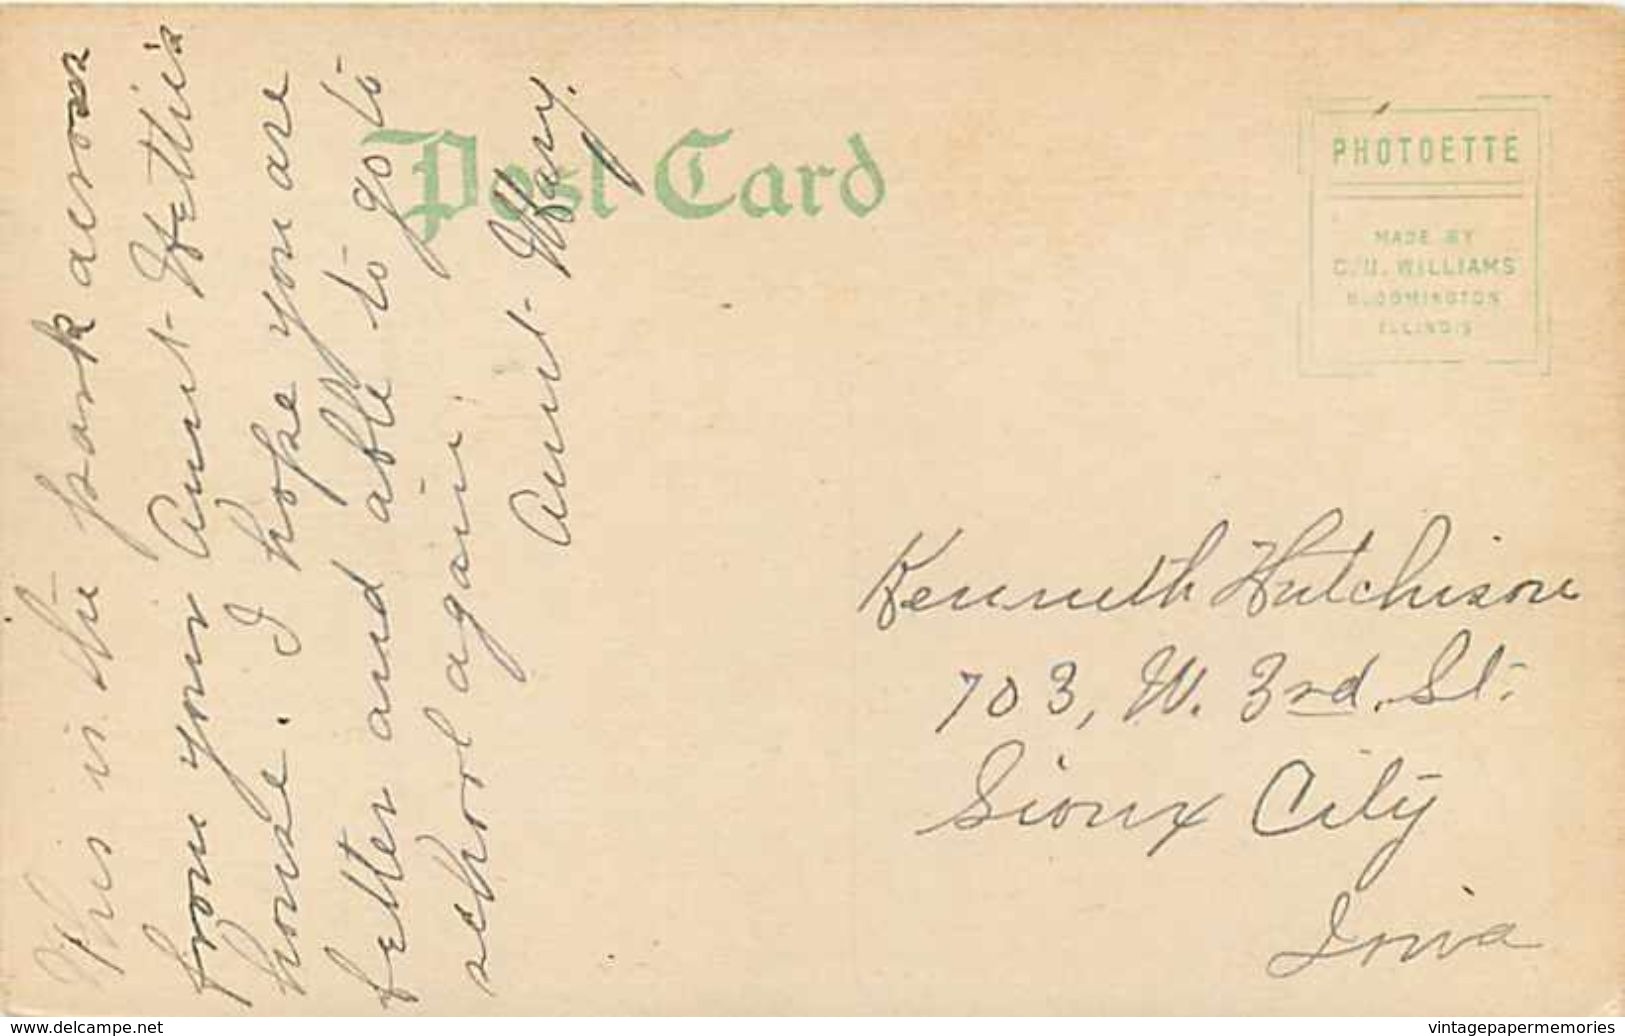 This is the park across
from your Aunt Hettie's
house. I hope you are
better and able to go to
school again.
Aunt Mary.
Post Card
PHOTOETTE
MADE BY
C.U. WILLIAMS
BLOOMINGTON
ILLINOIS
Kenneth Hutchison
703, W. 3rd. St.
Sioux City
Iowa
www.delcampe.net
vintagepapermemories